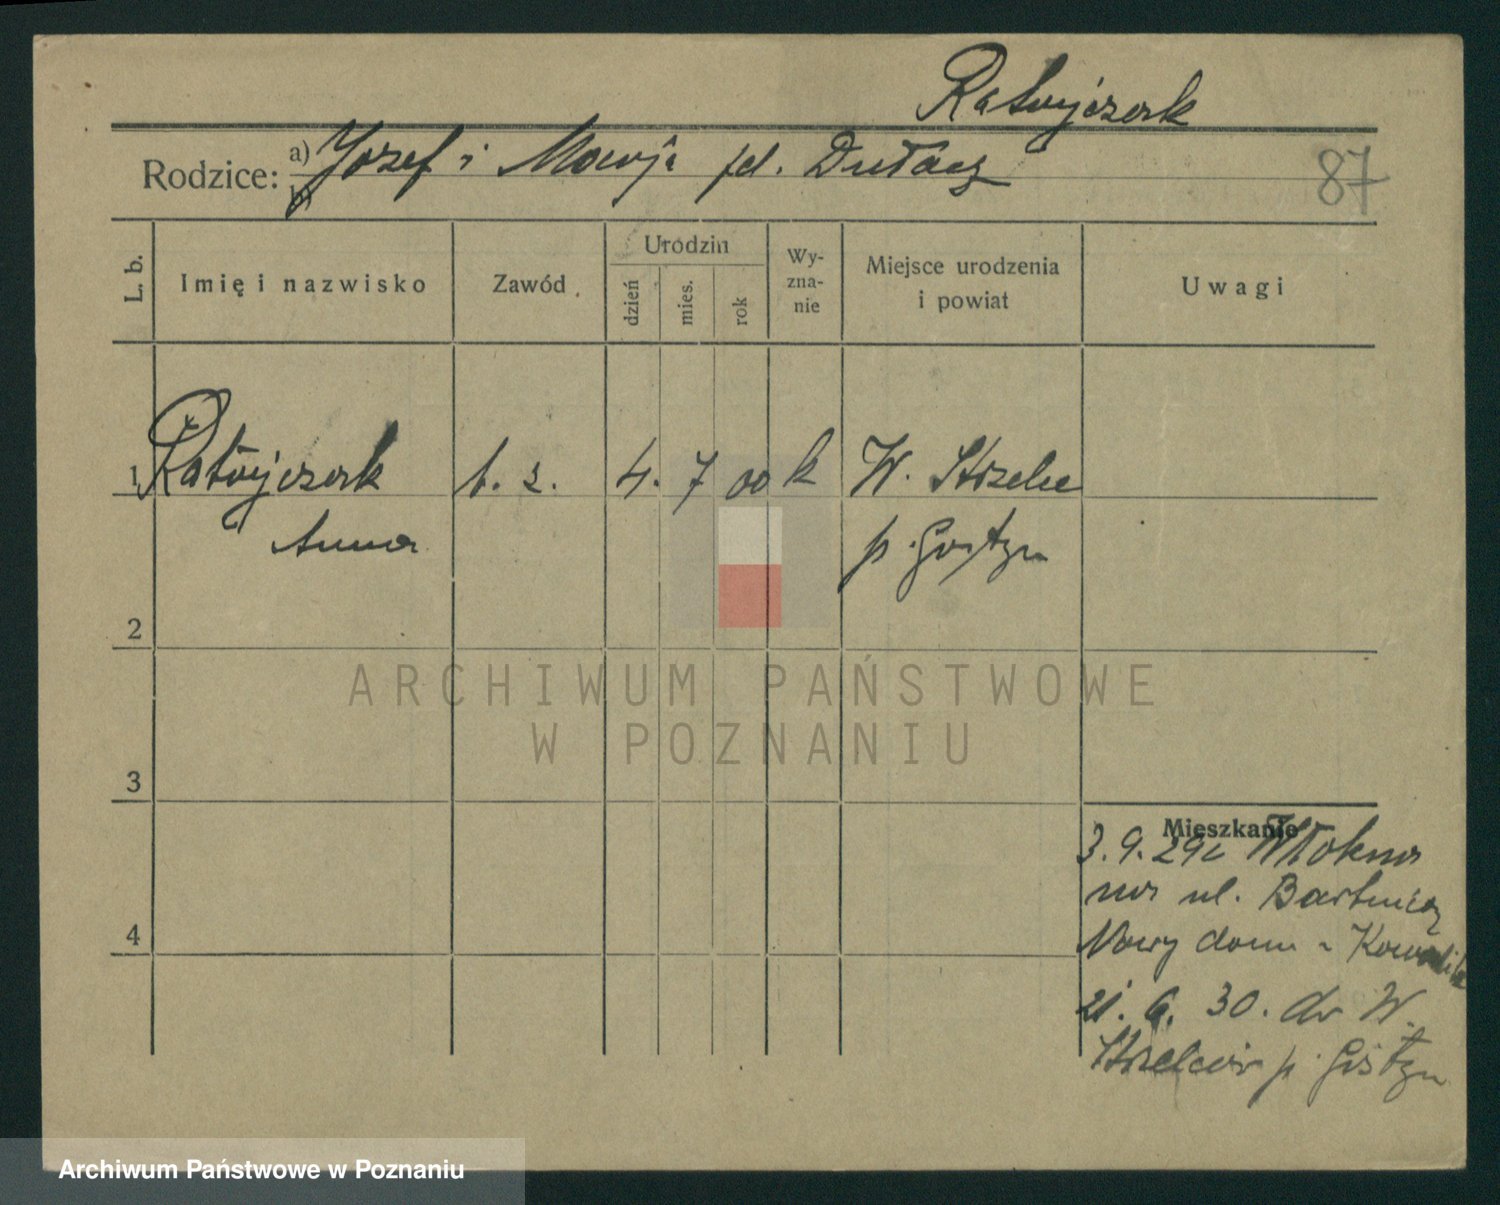 Ratajczak
Rodzice: a) Józef i Marja fd.
b)
87
L. b.
Imię i nazwisko
Zawód
Urodzin
dzień
mies.
rok
Wy-
zna-
nie
Miejsce urodzenia
i powiat
Uwagi
1 Ratajczak b. z. 4. 7 00 k W. Strzelce
Anna p. Gostyń
2
3
4
Mieszkanie
3. 9. 29 z
na ul.
Nowy dom
21. 6. 30. do W.
Strzelców p. Gostyń
ARCHIWUM PAŃSTWOWE
W POZNANIU
Archiwum Państwowe w Poznaniu